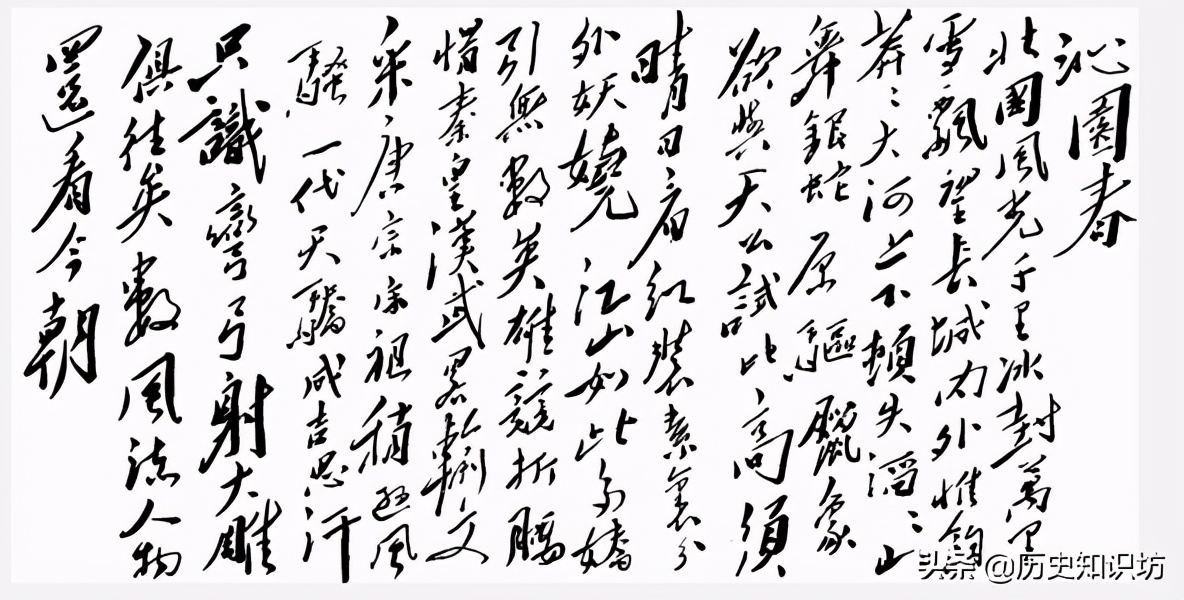 沁園春
北國風光千里冰封萬里
雪飄望長城内外惟餘
莽々大河上下頓失滔々山
舞銀蛇原驅臘象
欲與天公試比高須
晴日看紅裝素裹分
外妖嬈江山如此多嬌
引無數英雄競折腰
惜秦皇漢武略輸文
采唐宗宋祖稍遜風
騷一代天驕成吉思汗
只識彎弓射大雕
俱往矣數風流人物
還看今朝
头条 @历史知识坊